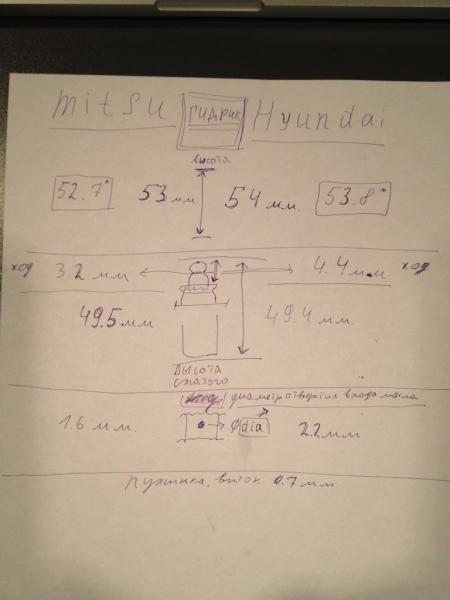 mitsu ГИДРИК Hyundai
высота
52.7* 53 мм 54 мм. 53.8*
ход 3.2 мм 4.4 мм ход
49.5 мм 49.4 мм.
Высота
сжатого
диаметр отверстия входа масла
1.6 мм. Ø dia 2.2 мм
пружинка, виток 0.7 мм.